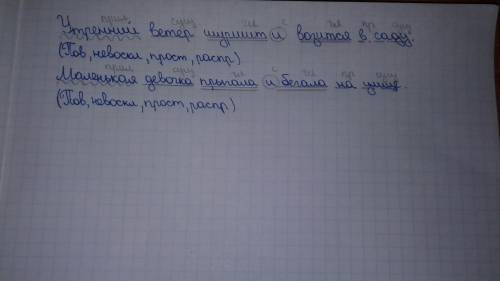 прил сущ гл с гл пр сущ
Утренний ветер шуршит и возится в саду.
(Пов, невоскл, прост, распр)
прил сущ гл с гл пр сущ
Маленькая девочка прыгала и бегала на улице.
(Пов, невоскл, прост, распр)